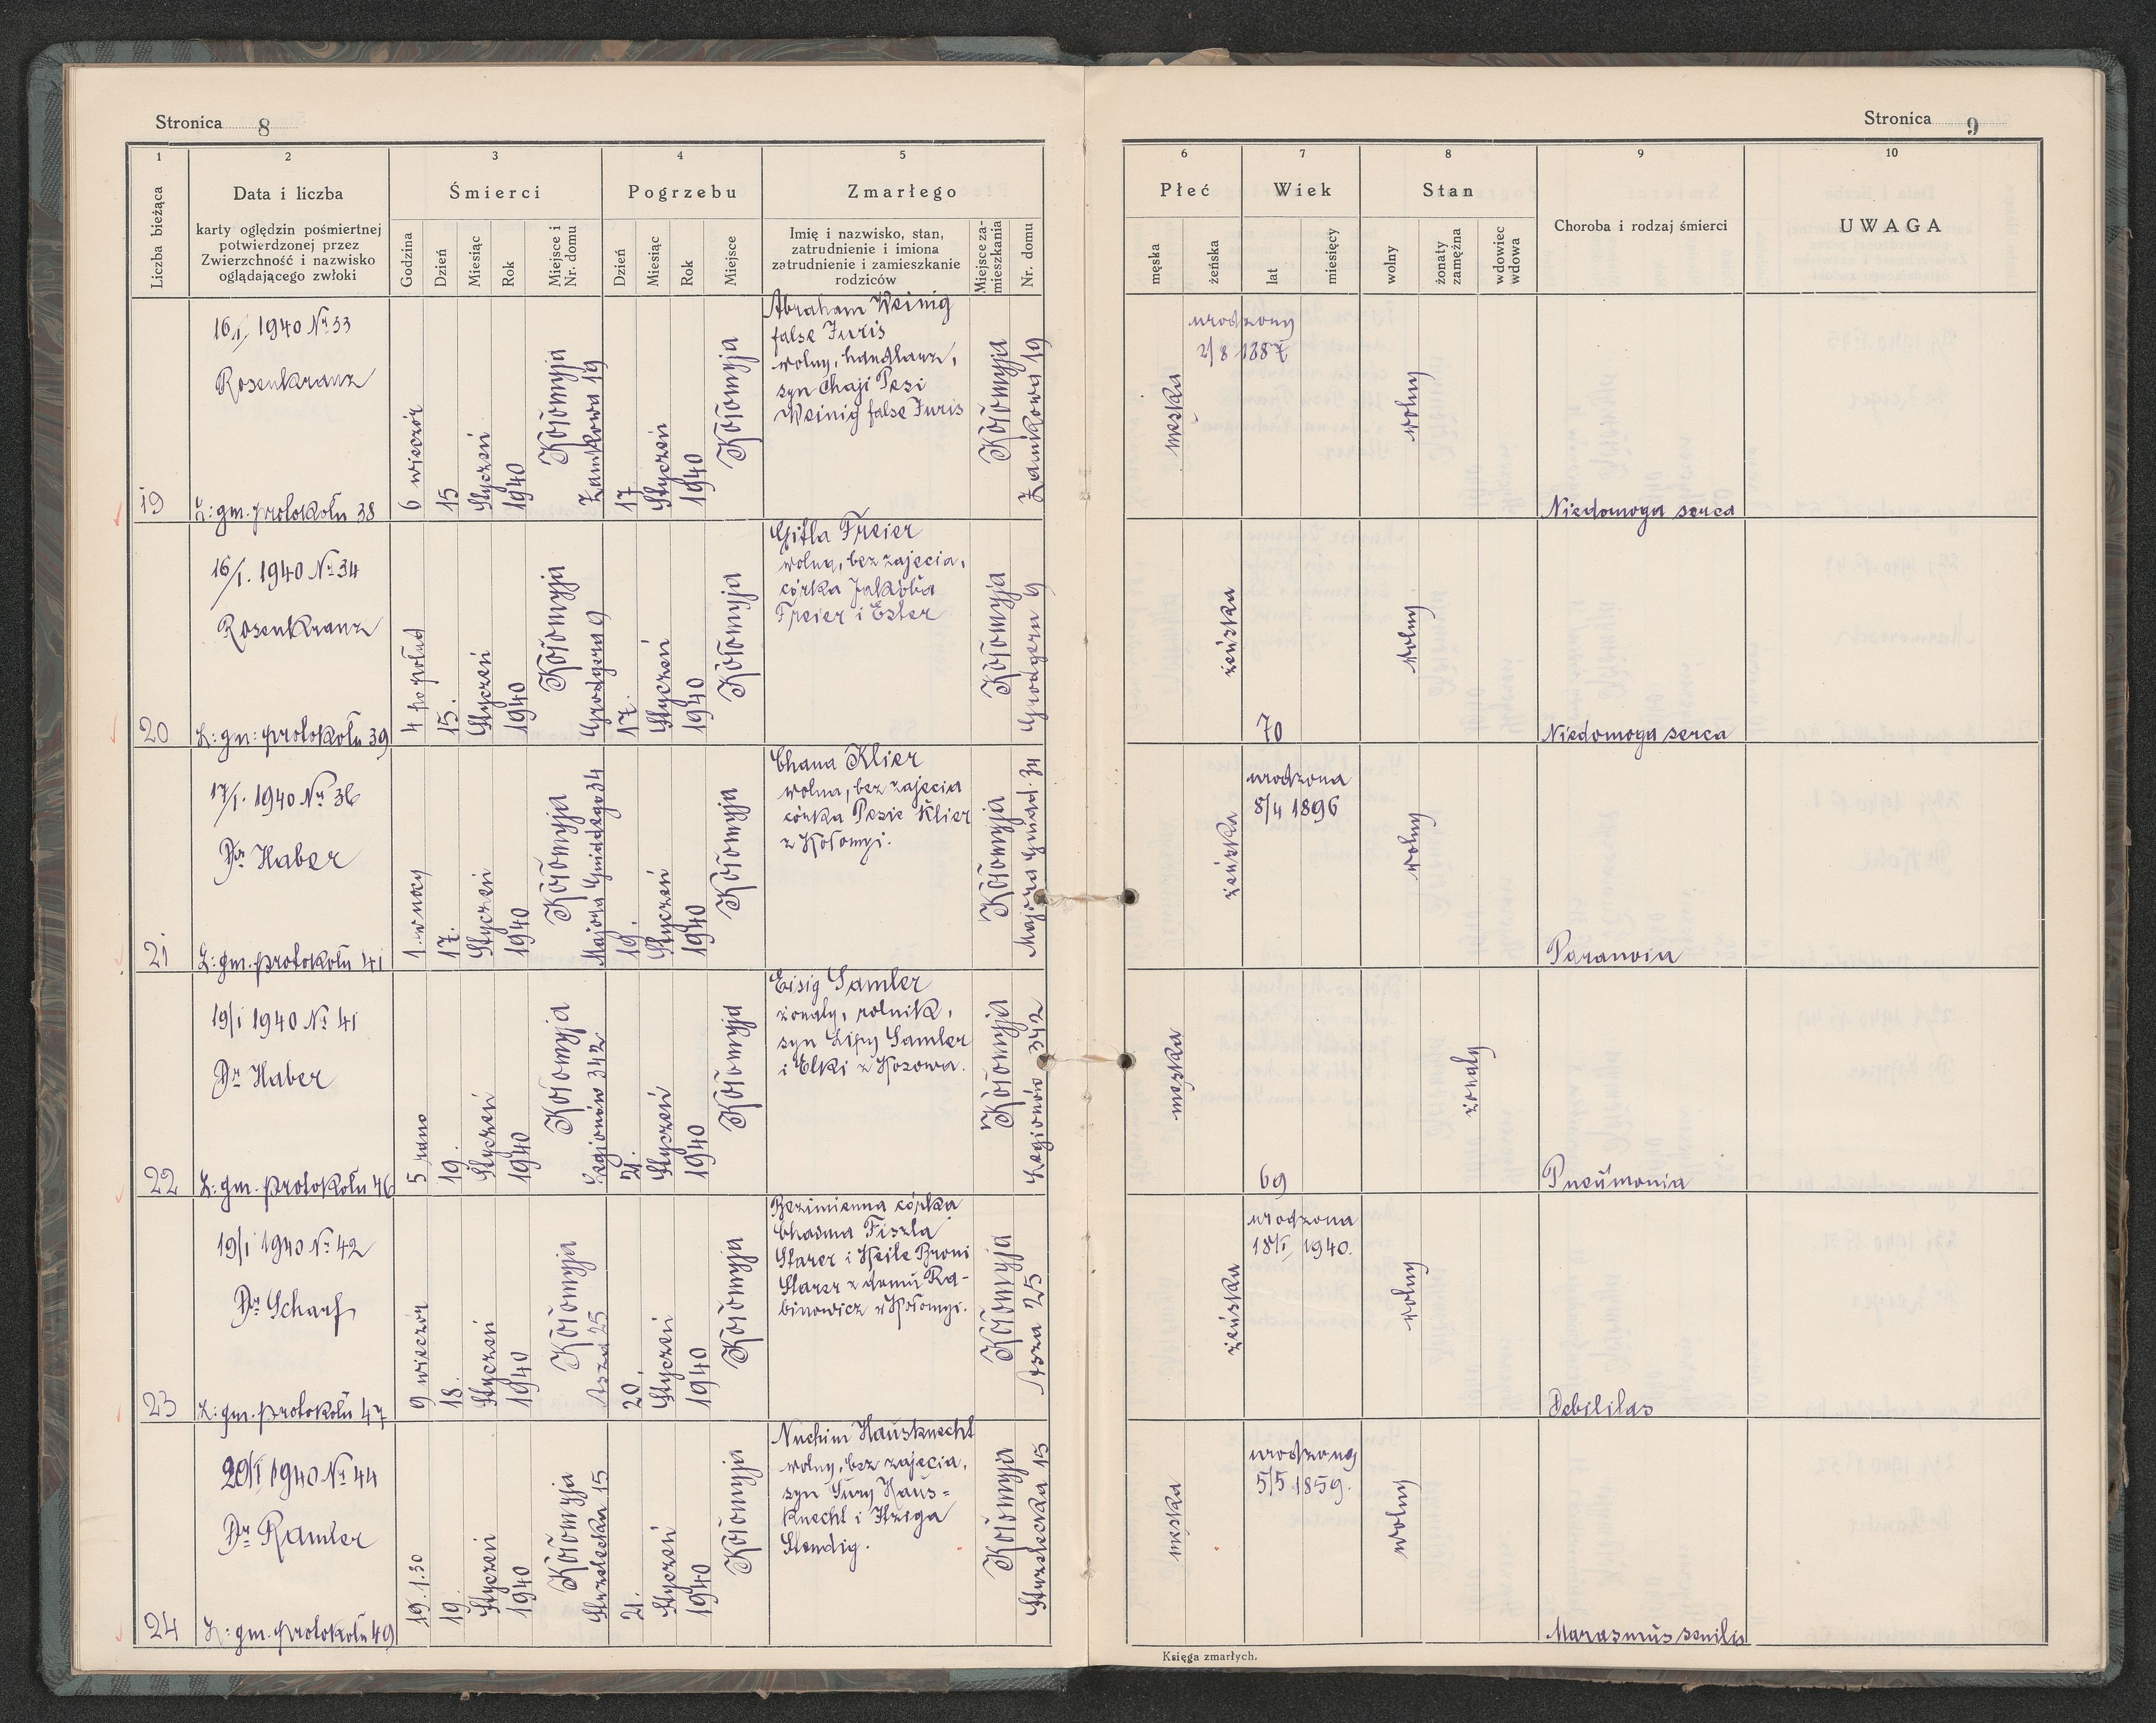 Stronica 8
1
2
3
4
5
Liczba bieżąca
Data i liczba
karty oględzin pośmiertnej
potwierdzonej przez
Zwierzchność i nazwisko
oglądającego zwłoki
Śmierci
Godzina
Dzień
Miesiąc
Rok
Miejsce i
Nr. domu
Pogrzebu
Dzień
Miesiąc
Rok
Miejsce
Zmarłego
Imię i nazwisko, stan,
zatrudnienie i imiona
zatrudnienie i zamieszkanie
rodziców
Miejsce za-
mieszkania
Nr. domu
19
16/I. 1940 № 33
Rosenkranz
L: gm. protokołu 38
6 wieczór
15
Styczeń
1940
Kołomyja
Zamkowa 19
17
Styczeń
1940
Kołomyja
Abraham Weinig
false Juris
wolny, handlarz,
syn Chaji Pesi
Weinig false Juris
Kołomyja
Zamkowa 19
20
16/I. 1940 № 34
Rosenkranz
L: gm: protokołu 39
4 po połud
15.
Styczeń
1940
Kołomyja
Grodgera 9
17.
Styczeń
1940
Kołomyja
Gitla Freier
wolna, bez zajęcia,
córka Jakóba
Freier i Ester
Kołomyja
Grodgera 9
21
17/I. 1940 № 36
Dr Haber
L: gm. protokołu 41
1 w nocy
17.
Styczeń
1940
Kołomyja
Majora Gniadego 34
19.
Styczeń
1940
Kołomyja
Chana Klier
wolna, bez zajęcia
córka Pesie Klier
z Kołomyi.
Kołomyja
Majora Gniad. 34
22
19/I 1940 № 41
Dr Haber
L: gm. protokołu 46
5 rano
19.
Styczeń
1940
Kołomyja
Legionów 342
21.
Styczeń
1940
Kołomyja
Eisig Samler
żonaty, rolnik,
syn Lipy Samler
i Elki z Kosowa.
Kołomyja
Legionów 342
23
19/I 1940 № 42
Dr Scharf
L: gm. protokołu 47
9 wieczór
18.
Styczeń
1940
Kołomyja
Asza 25
20.
Styczeń
1940
Kołomyja
Bezimienna córka
Chaima Fiszla
Starer i Keile Broni
Starer z domu Ra-
binowicz z Kołomyi.
Kołomyja
Asza 25
24
20/I 1940 № 44
Dr Ramler
L: gm. protokołu 49
19. 1.30
19.
Styczeń
1940
Kołomyja
Strzelecka 15
21.
Styczeń
1940
Kołomyja
Nuchim Hausknecht
wolny, bez zajęcia,
syn Sury Haus=
knecht i Itziga
Stendig.
Kołomyja
Strzelecka 15
Stronica 9
6
7
8
9
10
Płeć
męska
żeńska
Wiek
lat
miesięcy
Stan
wolny
żonaty
zamężna
wdowiec
wdowa
Choroba i rodzaj śmierci
UWAGA
męska
urodzony
2/8 1887
wolny
Niedomoga serca
żeńska
70
wolny
Niedomoga serca
żeńska
urodzona
8/4 1896
wolny
Paranoia
męska
69
żonaty
Pneumonia
żeńska
urodzona
18/I 1940.
wolny
Debilitas
męska
urodzony
5/5 1859.
wolny
Marasmus senilis
Księga zmarłych.